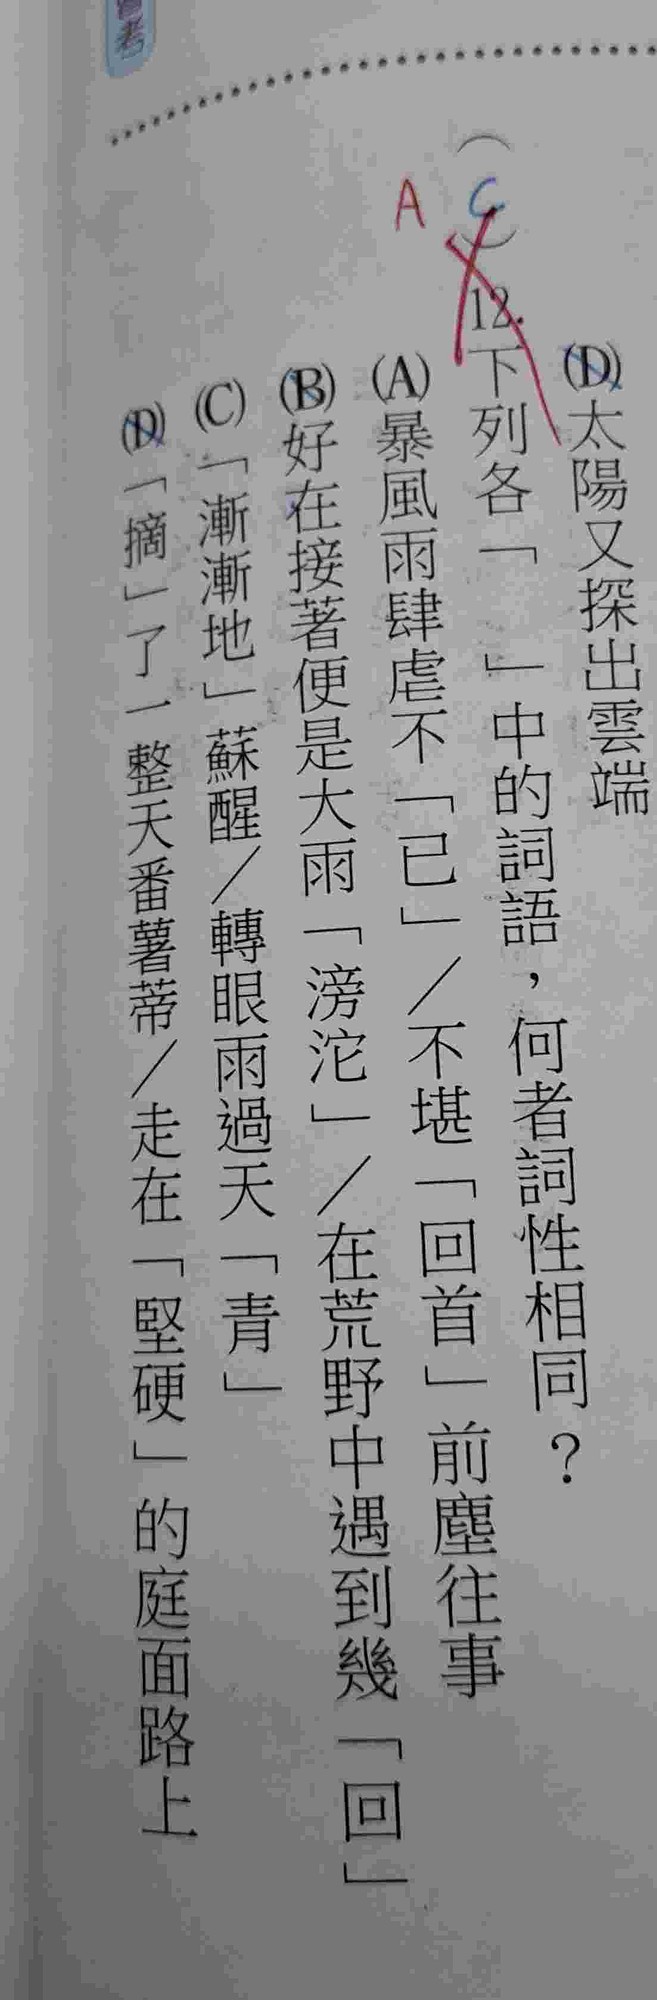 (D)太陽又探出雲端
(C)12.下列各「 」中的詞語，何者詞性相同？
A
(A)暴風雨肆虐不「已」／不堪「回首」前塵往事
(B)好在接著便是大雨「滂沱」／在荒野中遇到幾「回」
(C)「漸漸地」蘇醒／轉眼雨過天「青」
(D)「摘」了一整天番薯蒂／走在「堅硬」的庭面路上